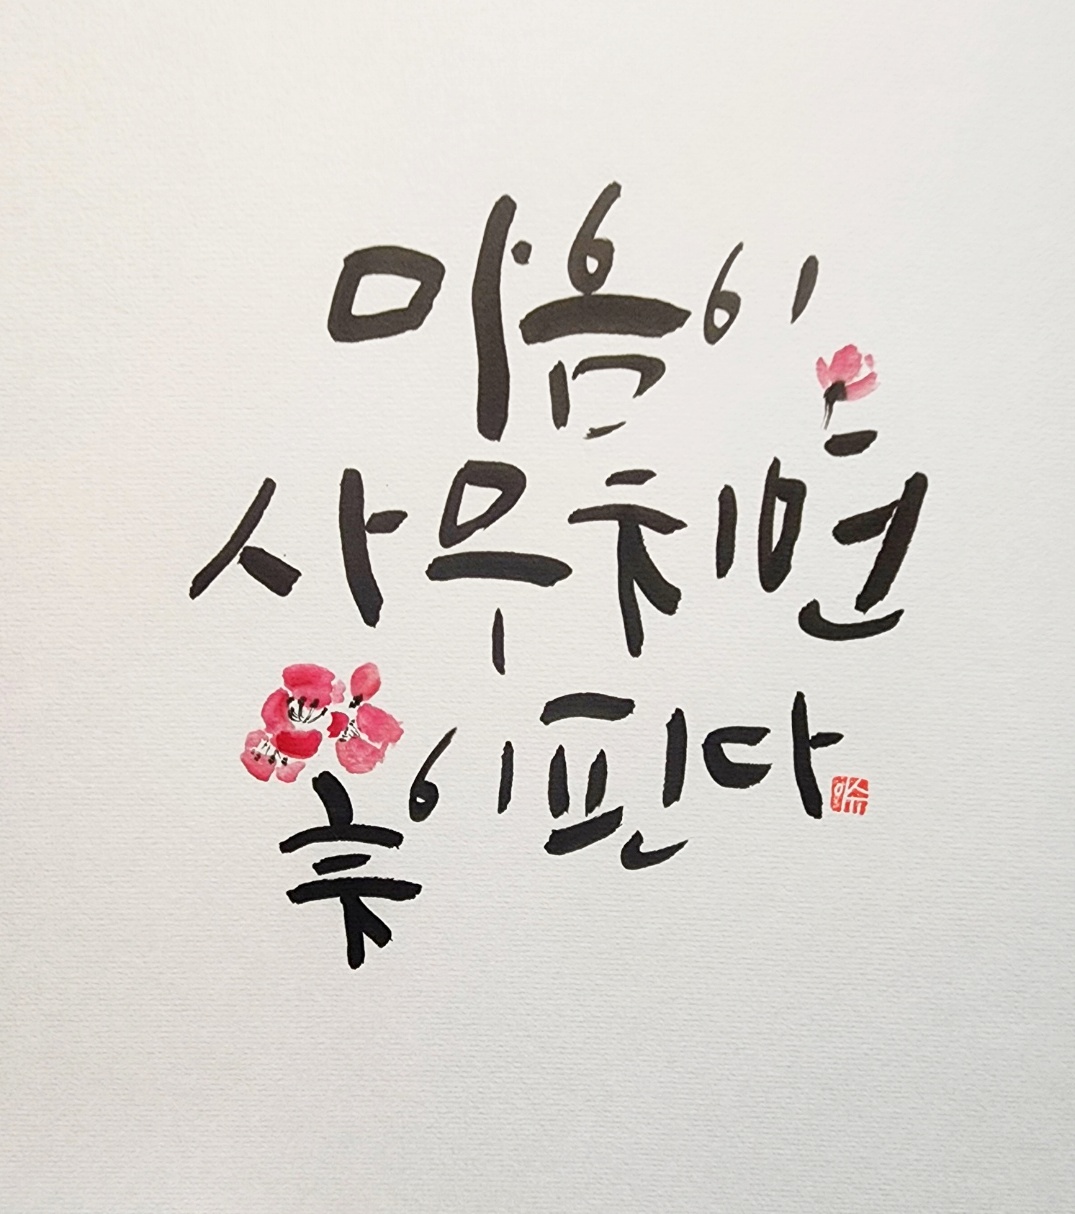 마음이
사무치면
꽃이 핀다